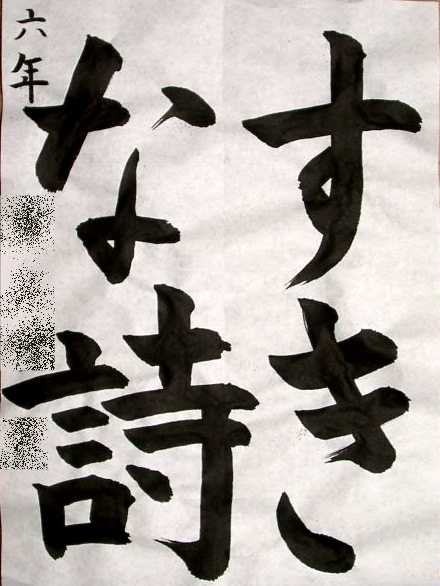 すき
な詩
六年